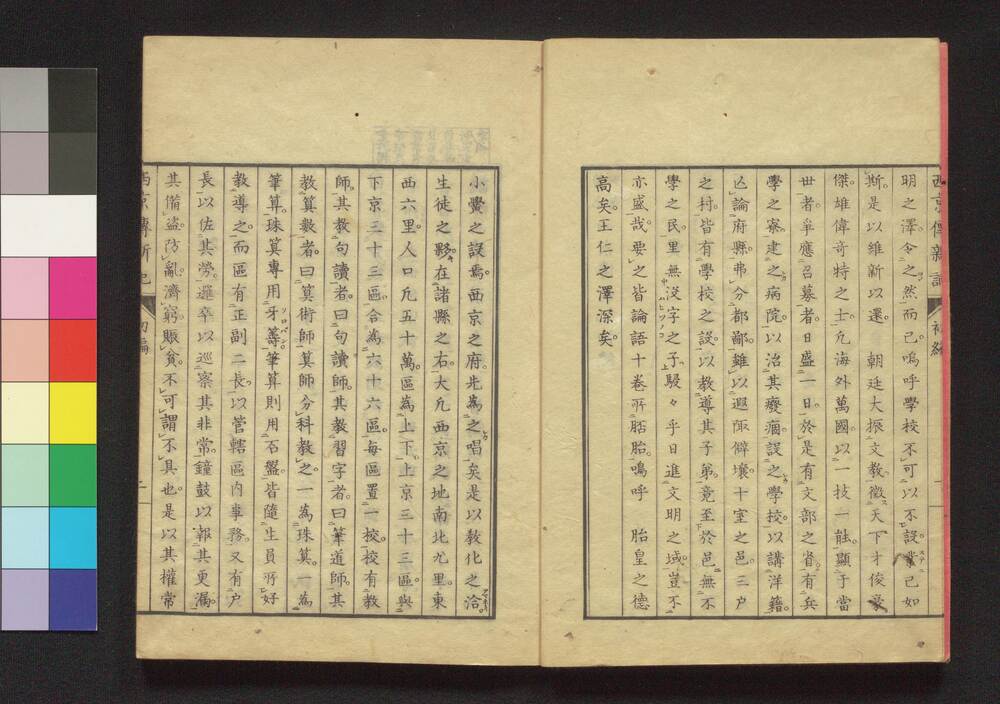 西京傳新記 初編
明之澤令之然而已嗚呼學校不可以不設業已如
斯是以維新以還 朝廷大振文教徵天下才俊豪
傑雄偉奇特之士凡海外萬國以一技一能顯于當
世者爭應召募者日盛一日於是有文部之省有兵
學之寮建之病院以治其癈痼設之學校以講洋籍
亾論府縣弗分都鄙雖以遐陬僻壤十室之邑三戸
之村皆有學校之設以教導其子弟竟至於邑無不
學之民里無没字之子駸々乎日進文明之域豈不
亦盛哉要之皆論語十卷所胚胎嗚呼 胎皇之德
高矣王仁之澤深矣
小黌之設焉西京之府先為之唱矣是以敎化之洽
生徒之夥在諸縣之右大凡西京之地南北九里東
西六里人口凡五十萬區為上下上京三十三區與
下京三十三區合為六十六區每區置一校校有教
師其教句讀者曰句讀師其教習字者曰筆道師其
教算數者曰算術師算師分科教之一為珠算一為
筆算珠算專用牙籌筆算則用石盤皆隨生員所好
教導之而區有正副二長以管轄區内事務又有戸
長以佐其勞邏卒以巡察其非常鐘鼓以報其更漏
其備盜防亂濟窮賑貧不可謂不具也是以其權常
西京傳新記 初編 二